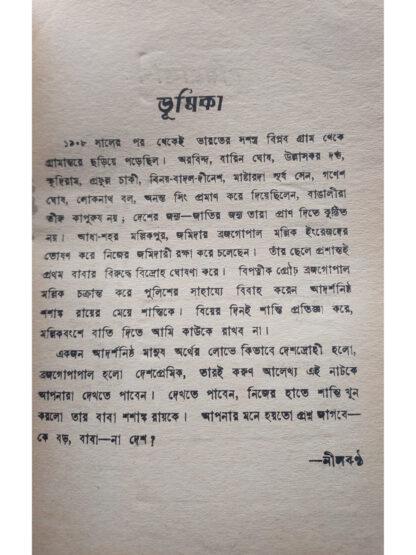 ভূমিকা
১৯০৮ সালের পর থেকেই ভারতের সশস্ত্র বিপ্লব গ্রাম থেকে
গ্রামান্তরে ছড়িয়ে পড়েছিল। অরবিন্দ, বারিন ঘোষ, উল্লাসকর দত্ত,
ক্ষুদিরাম, প্রফুল্ল চাকী, বিনয়-বাদল-দীনেশ, মাষ্টারদা সূর্য সেন, গণেশ
ঘোষ, লোকনাথ বল, অনন্ত সিং প্রমাণ করে দিয়েছিলেন, বাঙালীরা
ভীরু কাপুরুষ নয়; দেশের জন্য—জাতির জন্য তারা প্রাণ দিতে কুণ্ঠিত
নয়। আধা-শহর মল্লিকপুর, জমিদার ব্রজগোপাল মল্লিক ইংরেজদের
তোষণ করে নিজের জমিদারী রক্ষা করে চলেছেন। তাঁর ছেলে প্রশান্তই
প্রথম বাবার বিরুদ্ধে বিদ্রোহ ঘোষণা করে। বিপত্নীক প্রৌঢ় ব্রজগোপাল
মল্লিক চক্রান্ত করে পুলিশের সাহায্যে বিবাহ করেন আদর্শনিষ্ঠ
শশাঙ্ক রায়ের মেয়ে শান্তিকে। বিয়ের দিনই শান্তি প্রতিজ্ঞা করে,
মল্লিকবংশে বাতি দিতে আমি কাউকে রাখব না।
একজন আদর্শনিষ্ঠ মানুষ অর্থের লোভে কিভাবে দেশদ্রোহী হলো,
ব্রজগোপাল হলো দেশপ্রেমিক, তারই করুণ আলেখ্য এই নাটকে
আপনারা দেখতে পাবেন। দেখতে পাবেন, নিজের হাতে শান্তি খুন
করলো তার বাবা শশাঙ্ক রায়কে। আপনার মনে হয়তো প্রশ্ন জাগবে—
কে বড়, বাবা—না দেশ?
—নীলকণ্ঠ